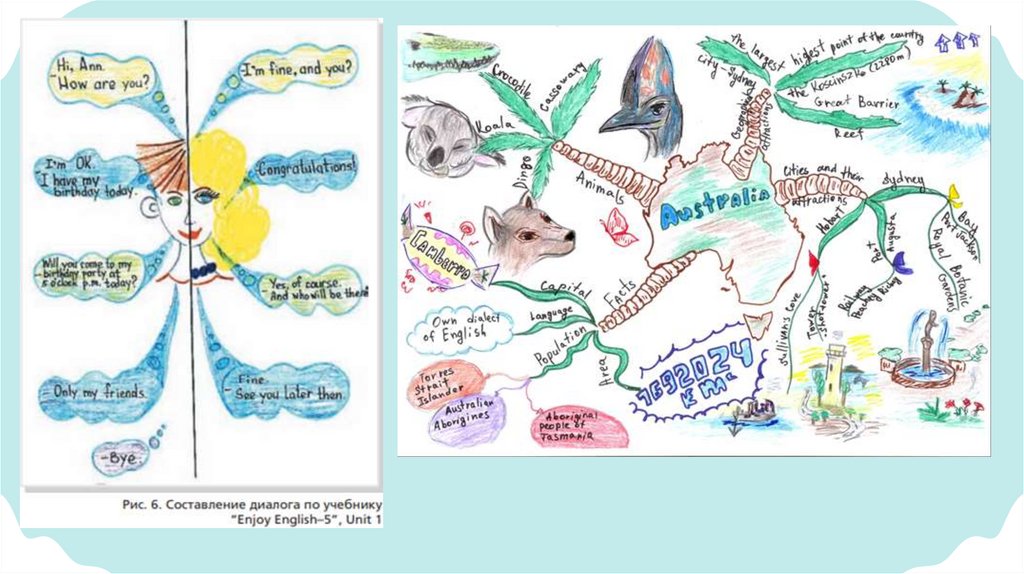 Hi, Ann.
How are you?
- I'm fine, and you?
- I'm OK.
- I have my
birthday today.
- Congratulations!
Will you come to my
- birthday party at
5 o'clock p.m. today?
- Yes, of course.
And who will be there?
- Only my friends.
Fine.
- See you later then.
- Bye.
Рис. 6. Составление диалога по учебнику
"Enjoy English–5", Unit 1
Australia
Animals
Crocodile
Cassowary
Koala
Dingo
Geographical
attractions
the largest
city - Sydney
highest point of the country
the Kosciuszko (2280m)
Great Barrier
Reef
cities and their
attractions
Sydney
Port Jackson
Bay
Royal Botanic
Gardens
Hobart
Sullivan's Cove
Tower
Shot tower
Port
Augusta
Railway
Facts
Capital
Language
Own dialect
of English
Population
Torres
Strait
Islander
Australian
Aborigines
Aboriginal
people of
Tasmania
Area
7692024
км²